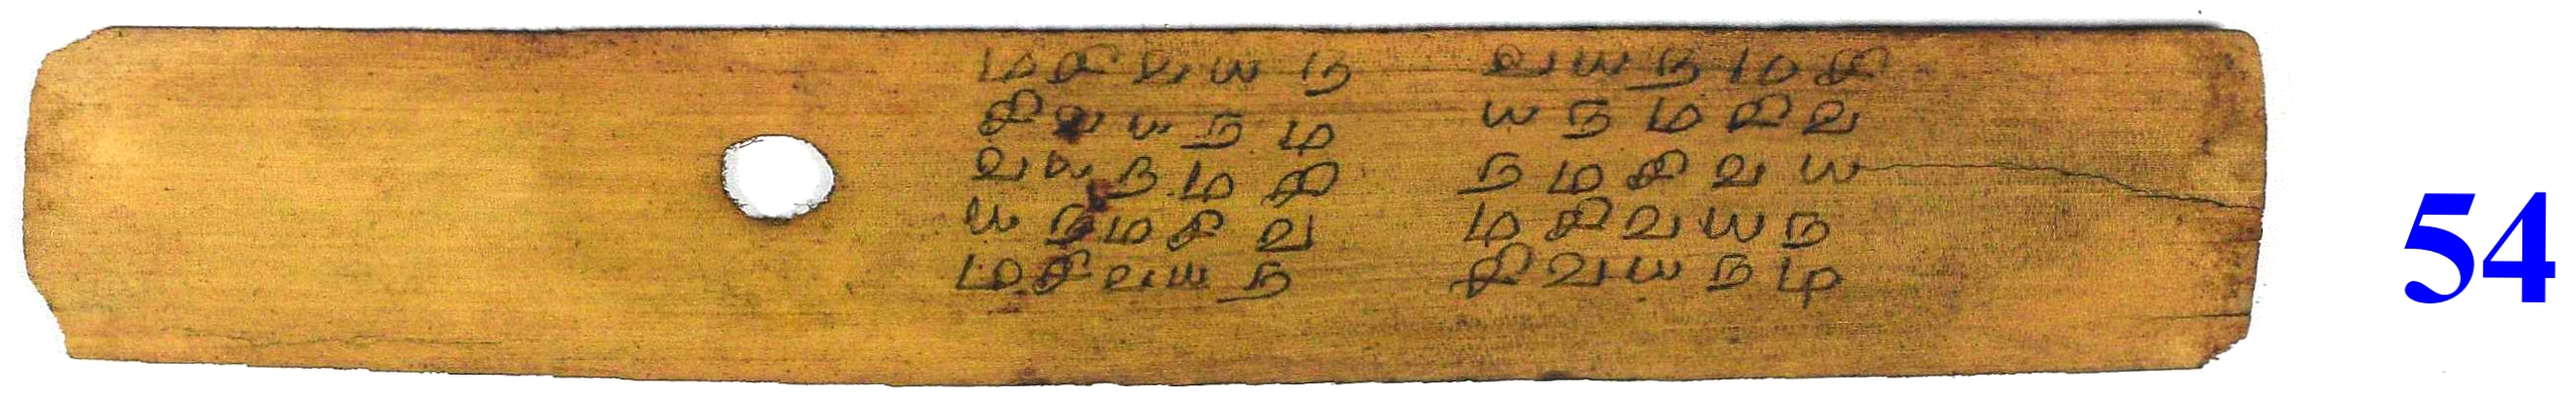 ம சி வ ய ந வ ய ந ம சி
சி வ ய ந ம ய ந ம சி வ
வ ய ந ம சி ந ம சி வ ய
ய ந ம சி வ ம சி வ ய ந
ம சி வ ய ந சி வ ய ந ம
54